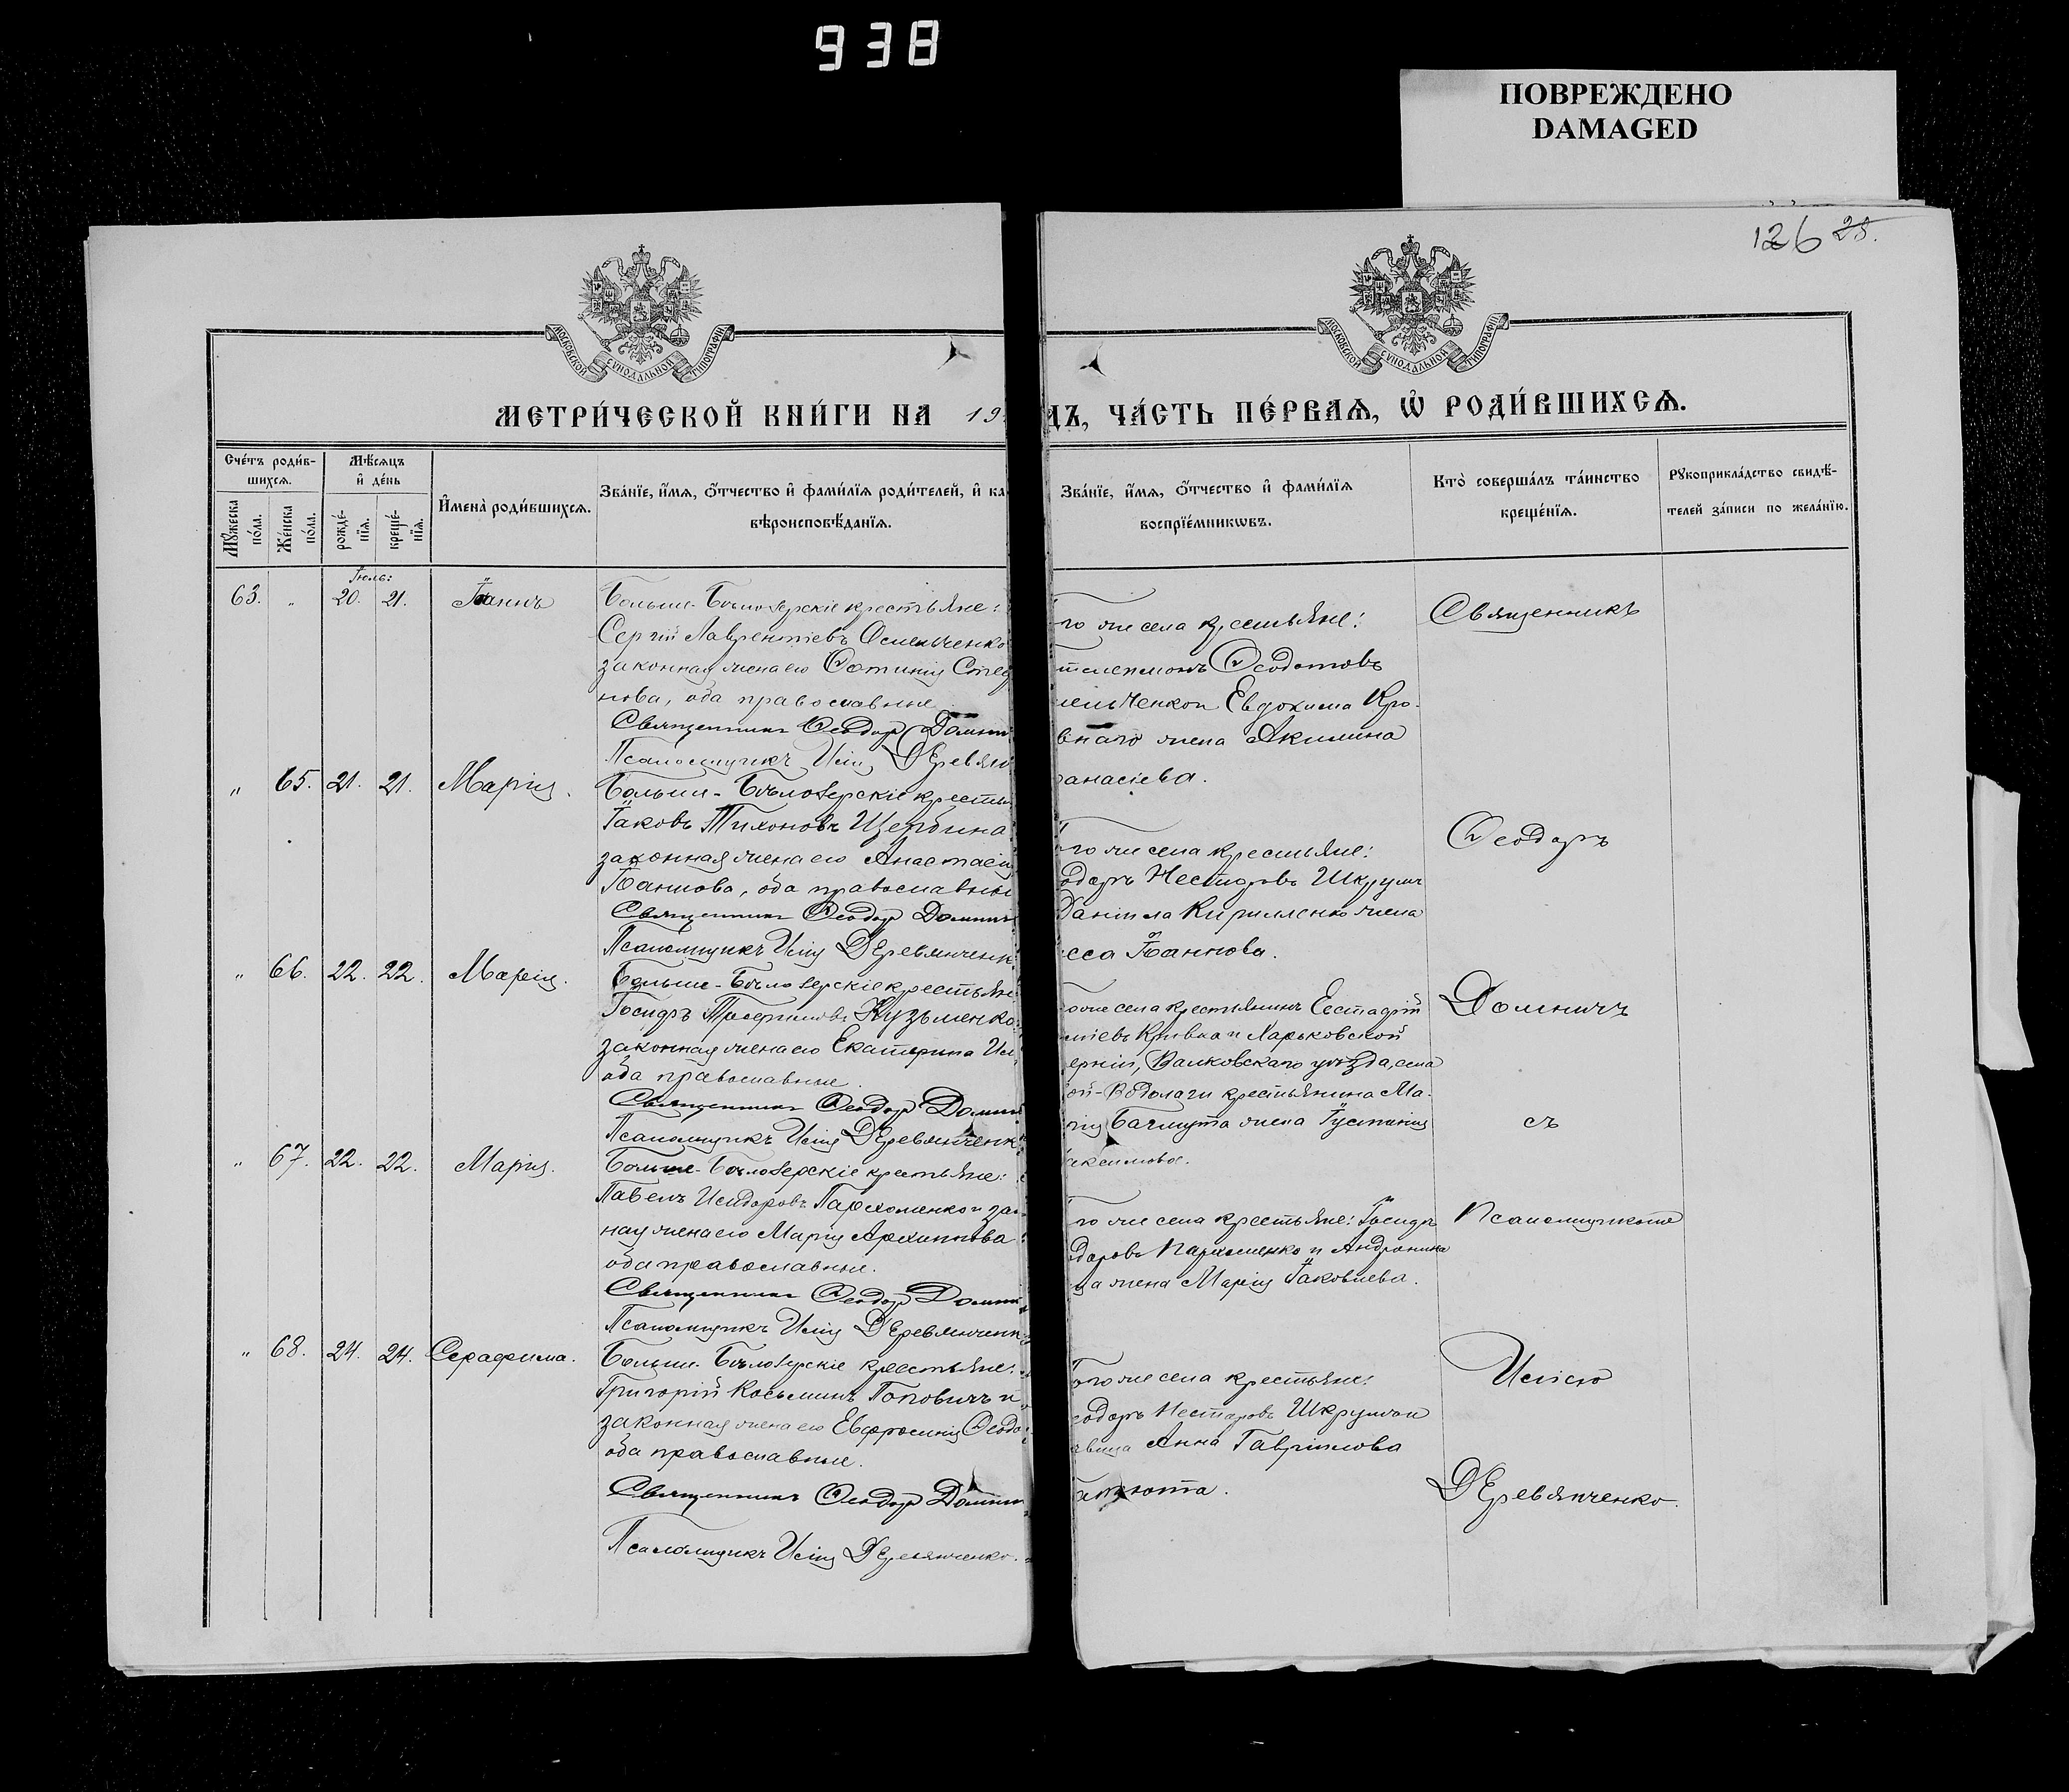 938
ПОВРЕЖДЕНО
DAMAGED
126 28.
МОСКОВСКОЙ СУНОДАЛЬНОЙ ТИПОГРАФІИ
МОСКОВСКОЙ СУНОДАЛЬНОЙ ТИПОГРАФІИ
МЕТРИ́ЧЕСКОЙ КНИ́ГИ НА 19
ДЪ, ЧА́СТЬ ПЕ́РВАѦ, Ѡ҆ РОДИ́ВШИХСѦ.
Сче́тъ роди́в-
шихсѧ.
Мꙋ́жеска по́ла.
Же́нска по́ла.
Мѣ́сѧцъ
и҆ де́нь
рожде́-нїѧ.
креще́-нїѧ.
И҆мена̀ роди́вшихсѧ.
Зва́нїе, и҆́мѧ, ѻ҆́тчество и҆ фами́лїѧ роди́телей, и҆ ка
вѣроисповѣ́данїѧ.
Зва́нїе, и҆́мѧ, ѻ҆́тчество и҆ фами́лїѧ
воспрїе́мникѡвъ.
Кто̀ соверша́лъ та́инство
креще́нїѧ.
Рꙋкоприкла́дство свидѣ́-
телей за́писи по жела́нїю.
Іюль:
63. „ 20. 21. Іоаннъ
Больше-Бѣлозерскіе крестьяне:
Сергій Лаврентіевъ Осмельченко
законная жена его Фотинія Сте
нова, оба православные
Священникъ Ѳеодоръ Домни
Псаломщикъ Исаія Деревян
го же села крестьяне:
Ѳеодотовъ
Евдокима Кро-
внаго жена Акилина
анасіева.
Священникъ
„ 65. 21. 21. Марія.
Больше-Бѣлозерскіе кресть
Іаковъ Тихоновъ Щербина
законная жена его Анастасія
Іоаннова, оба православны
Священникъ Ѳеодоръ Домнич
Псаломщикъ Исаія Деревянченк
го же села крестьяне:
одоръ Несторовъ Шкрум
Даніила Кирилленко жена
сса Іоаннова.
Ѳеодоръ
„ 66. 22. 22. Марія.
Больше-Бѣлозерскіе крестьян
Іосифъ Трофимовъ Кузьменко
законная жена его Екатерина
оба православные.
Священникъ Ѳеодоръ Домни
Псаломщикъ Исаія Деревянченк
го же села крестьянинъ Естафій
Кривка и Харьковской
ерніи, Валковскаго уѣзда, села
ой-Водолаги крестьянина Ма-
Бахмута жена Іустинія
аксимова.
Домничъ
съ
„ 67. 22. 22. Марія.
Больше-Бѣлозерскіе крестьяне:
Павелъ Исидоровъ Пархоменко и зак
ная жена его Марія Архиппова
оба православные.
Священникъ Ѳеодоръ Домни
Псаломщикъ Исаія Деревянченк
го же села крестьяне:
доровъ Пархоменко и Андроника
жена Марія Іаковлева.
Псаломщикомъ
„ 68. 24. 24. Серафима.
Больше-Бѣлозерскіе крестьяне:
Григорій Косьминъ Поповичъ и
законная жена его Евфросинія Ѳеодо
оба православные.
Священникъ Ѳеодоръ Домни
Псаломщикъ Исаія Деревянченко.
того же села крестьяне:
еодоръ Несторовъ Шкрум
вица Анна Гавриилова
Исаіею
Деревянченко.